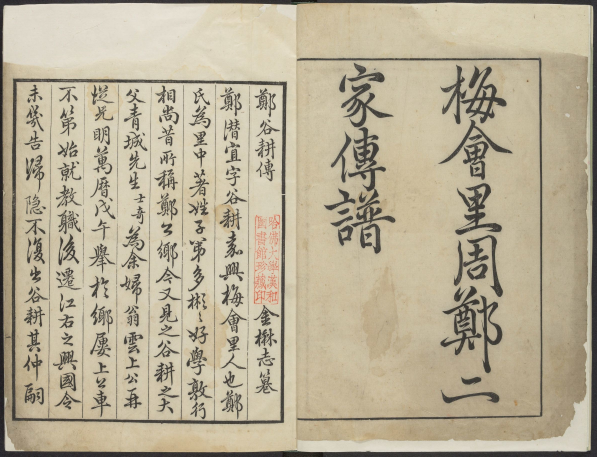 梅會里周鄭二
家傳譜
鄭谷耕傳
金楙志篹
鄭潛宜字谷耕嘉興梅會里人也鄭
氏為里中著姓子弟多彬〻好學敦行
相尚昔所稱鄭公鄉今又見之谷耕之大
父青城先生士奇為余婦翁雲上公再
從兄明萬曆戊午舉於鄉屢上公車
不第始就教職後遷江右之興國令
未幾告歸隱不復出谷耕其仲嗣
哈佛大學漢和
圖書館珍藏印